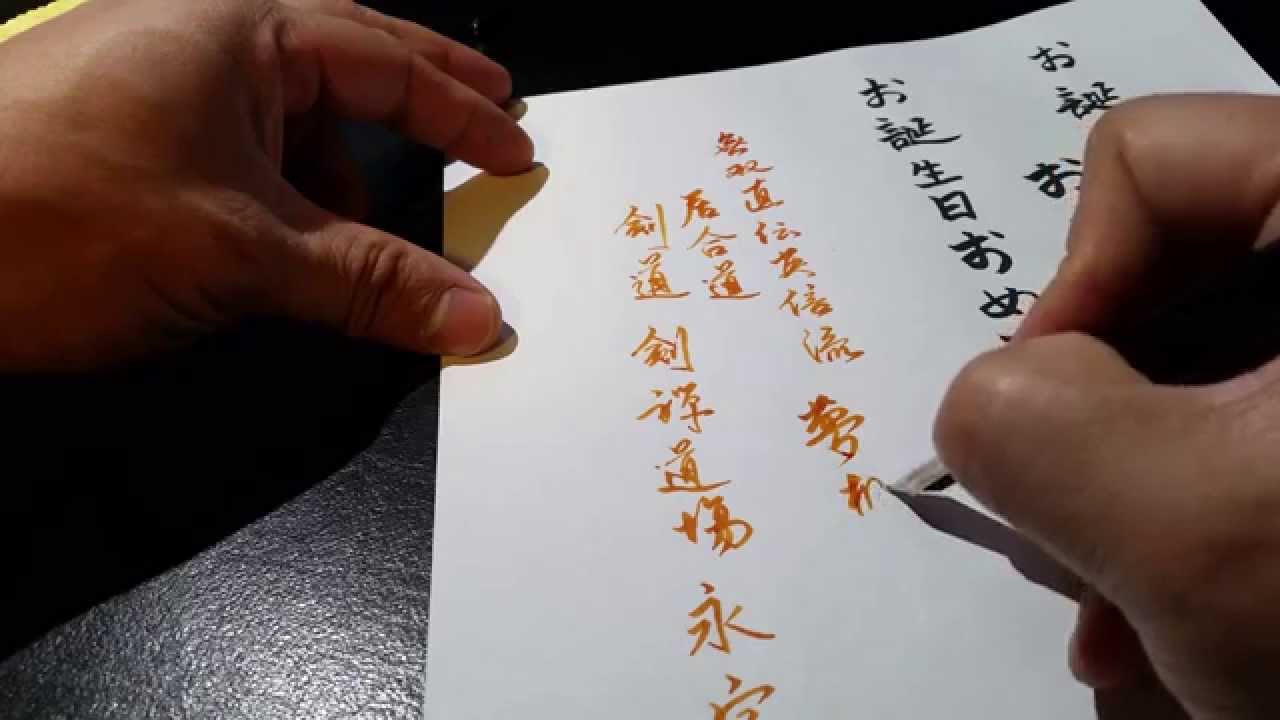 お誕
お
お誕生日おめ
無双直伝英信流 夢
居合道
剣道 剣禅道場 永